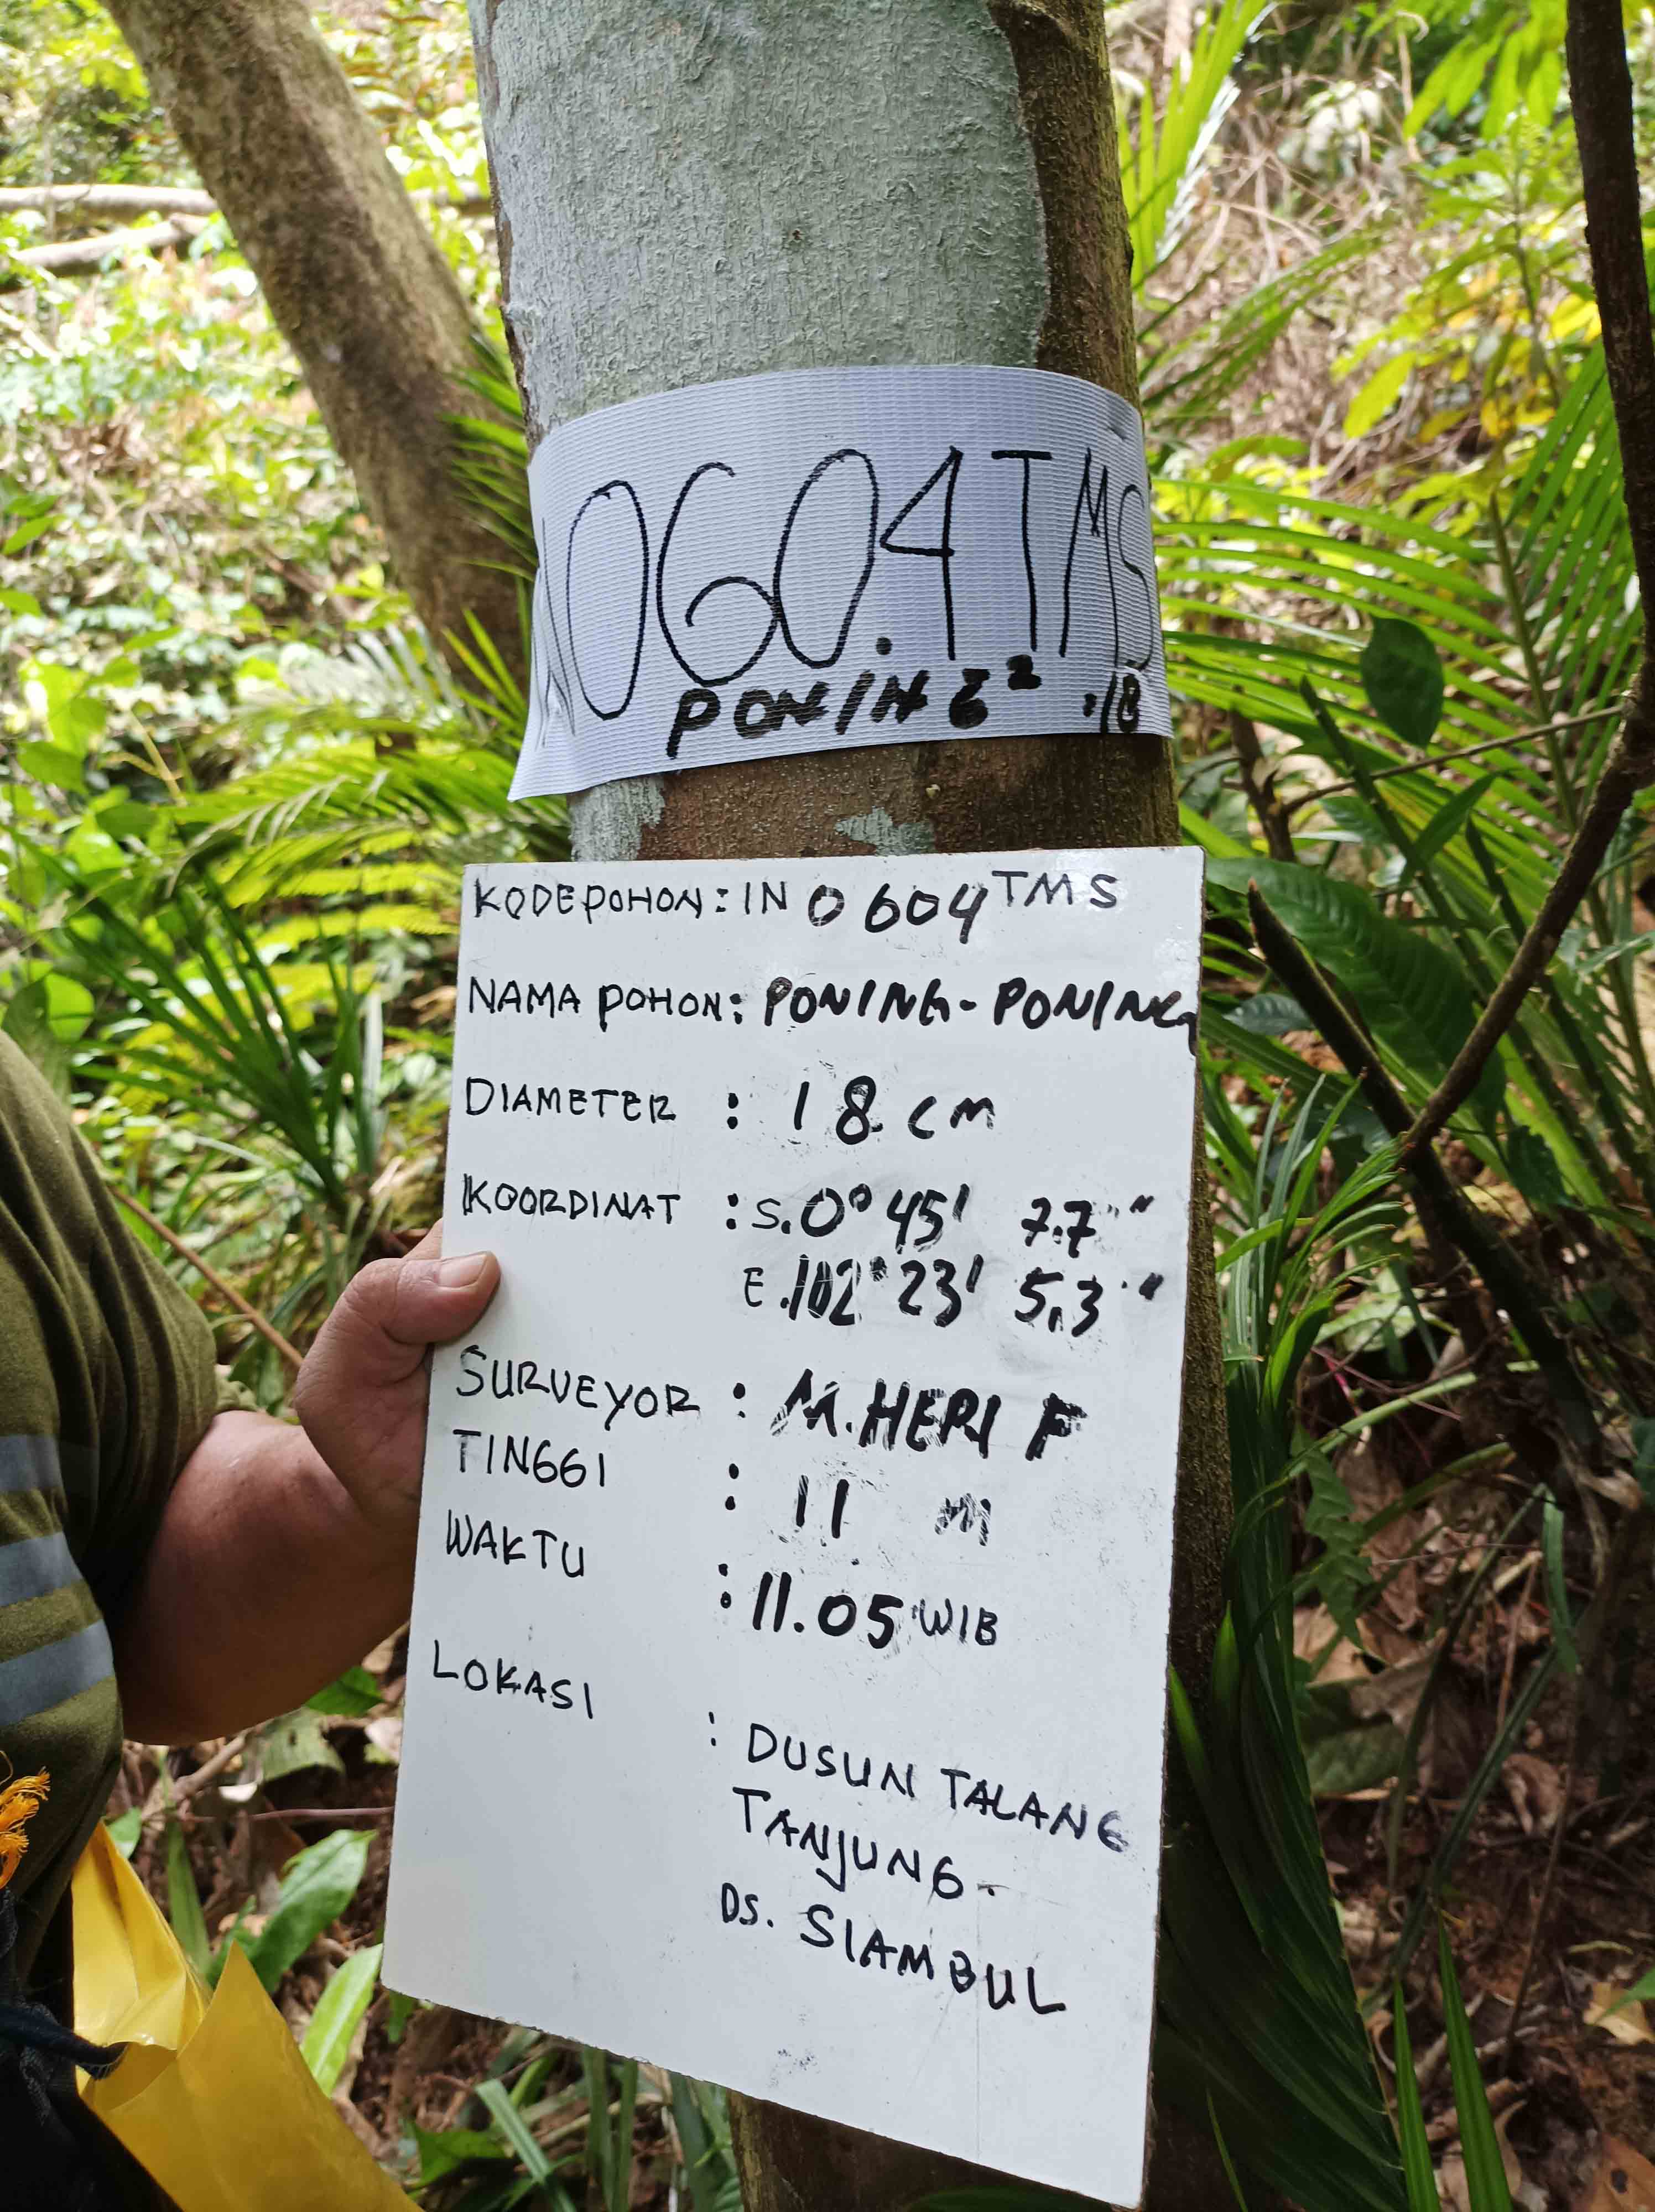 N0604TMS
PONING² .18
KODEPOHON: IN 0604 TMS
NAMA POHON: PONING-PONING
DIAMETER : 18 CM
KOORDINAT : S.0° 45' 7.7"
E.102° 23' 5.3"
SURVEYOR : M.HERI F
TINGGI : 11 M
WAKTU : 11.05 WIB
LOKASI : DUSUN TALANG
TANJUNG.
DS. SIAMBUL